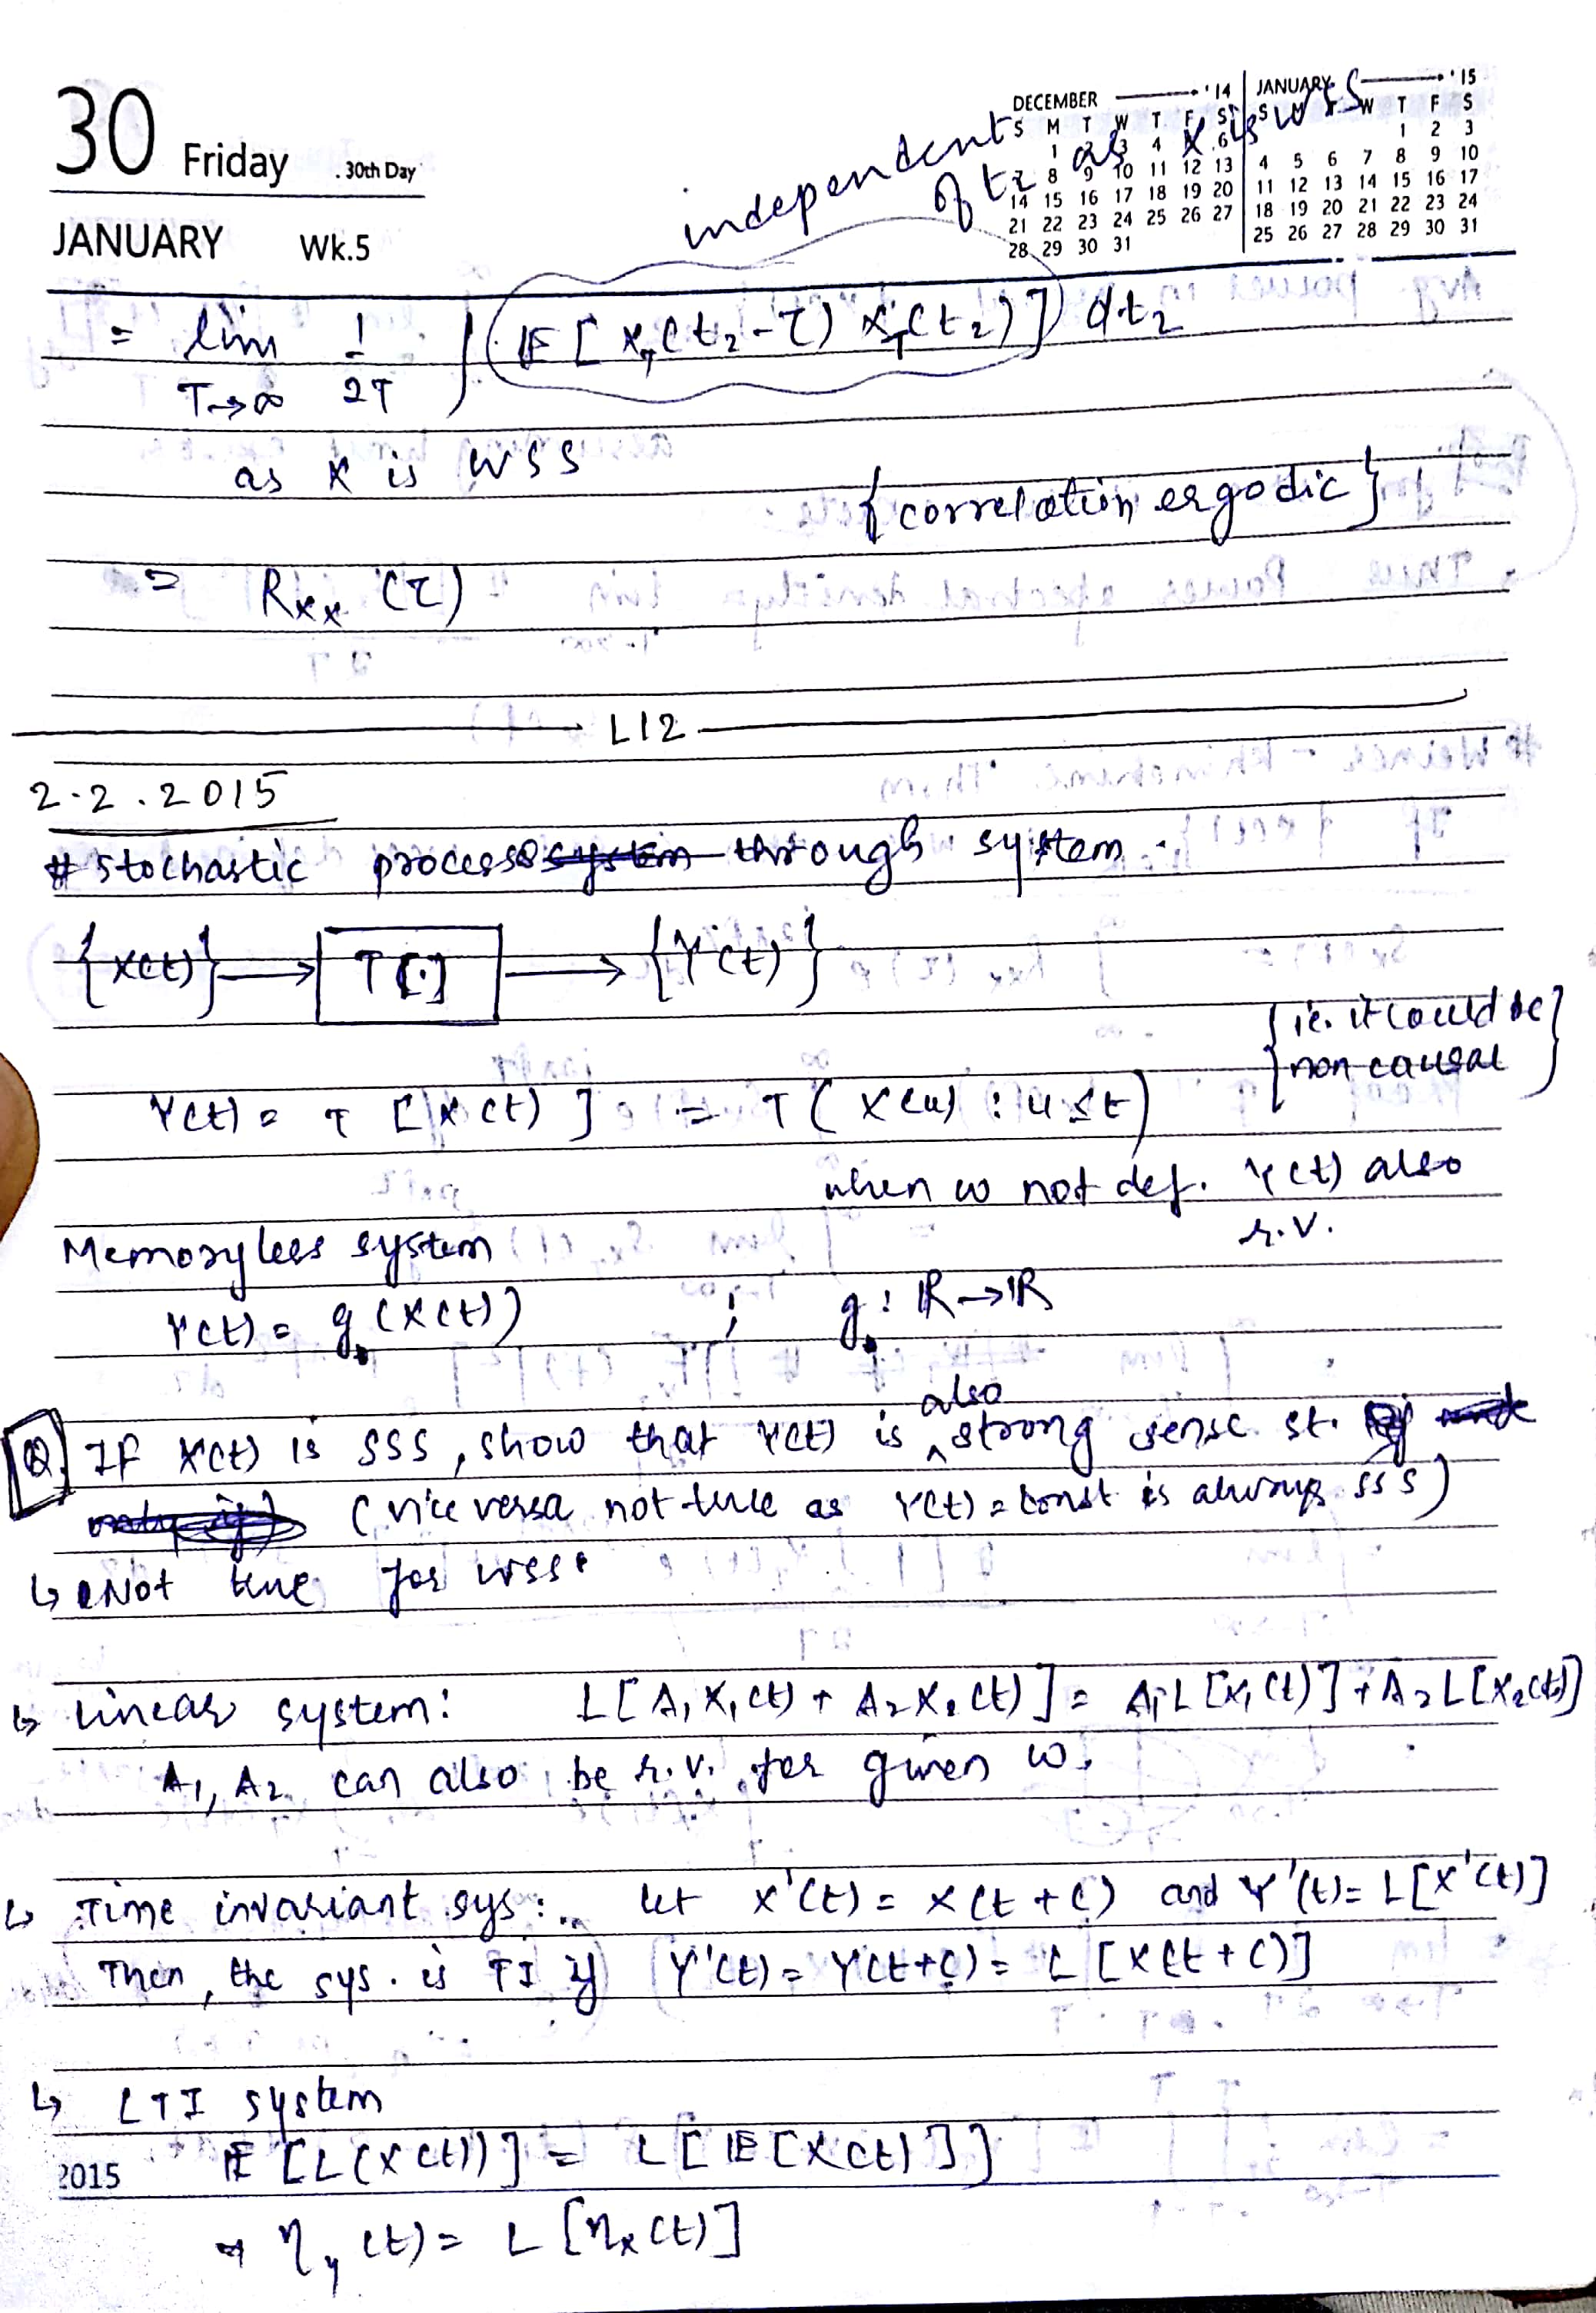 30 Friday 30th Day
JANUARY Wk.5
DECEMBER '14 JANUARY '15
S M T W T F S S M T W T F S
1 2 3 4 5 6 1 2 3
7 8 9 10 11 12 13 4 5 6 7 8 9 10
14 15 16 17 18 19 20 11 12 13 14 15 16 17
21 22 23 24 25 26 27 18 19 20 21 22 23 24
28 29 30 31 25 26 27 28 29 30 31
independent of t₂ as X is WSS
= lim T→∞ 1/2T ∫ (𝔼[X_T(t₂-τ) X_T(t₂)]) dt₂
as X is WSS
{correlation ergodic}
= Rxx (τ)
L12
2.2.2015
# Stochastic process system through system
{X(t)} → T[·] → {Y(t)}
{i.e. it could be non causal}
Y(t) = T [X(t)] = T(X(u) : u ≤ t)
when ω not def. Y(t) also r.v.
Memoryless system
Y(t) = g(X(t)) ; g: ℝ→ℝ
Q. If X(t) is SSS, show that Y(t) is also strong sense st.
only if) (vice versa not true as Y(t) = const is always SSS)
↳ Not true for WSS.
↳ Linear system: L[A₁X₁(t) + A₂X₂(t)] = A₁L[X₁(t)] + A₂L[X₂(t)]
A₁, A₂ can also be r.v. for given ω.
↳ Time invariant sys: let X'(t) = X(t+C) and Y'(t) = L[X'(t)]
Then, the sys. is TI if Y'(t) = Y(t+C) = L[X(t+C)]
↳ LTI system
𝔼[L(X(t))] = L[𝔼[X(t)]]
2015
⇒ η_y(t) = L[η_x(t)]